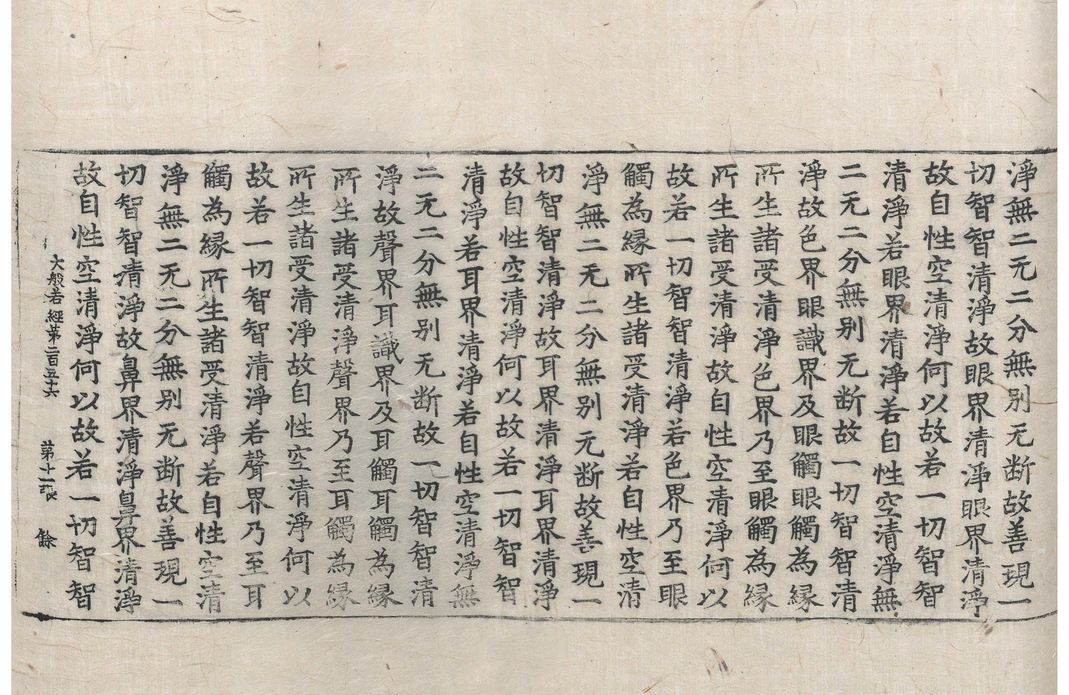 淨無二无二分無别无断故善現一
切智智清淨故眼界清淨眼界清淨
故自性空清淨何以故若一切智智
清淨若眼界清淨若自性空清淨無
二无二分無别无断故一切智智清
淨故色界眼識界及眼觸眼觸為縁
所生諸受清淨色界乃至眼觸為縁
所生諸受清淨故自性空清淨何以
故若一切智智清淨若色界乃至眼
觸為縁所生諸受清淨若自性空清
淨無二无二分無别无断故善現一
切智智清淨故耳界清淨耳界清淨
故自性空清淨何以故若一切智智
清淨若耳界清淨若自性空清淨無
二无二分無别无断故一切智智清
淨故聲界耳識界及耳觸耳觸為縁
所生諸受清淨聲界乃至耳觸為縁
所生諸受清淨故自性空清淨何以
故若一切智智清淨若聲界乃至耳
觸為縁所生諸受清淨若自性空清
淨無二无二分無别无断故善現一
切智智清淨故鼻界清淨鼻界清淨
故自性空清淨何以故若一切智智
大般若經第二百五十六 第十二張 餘